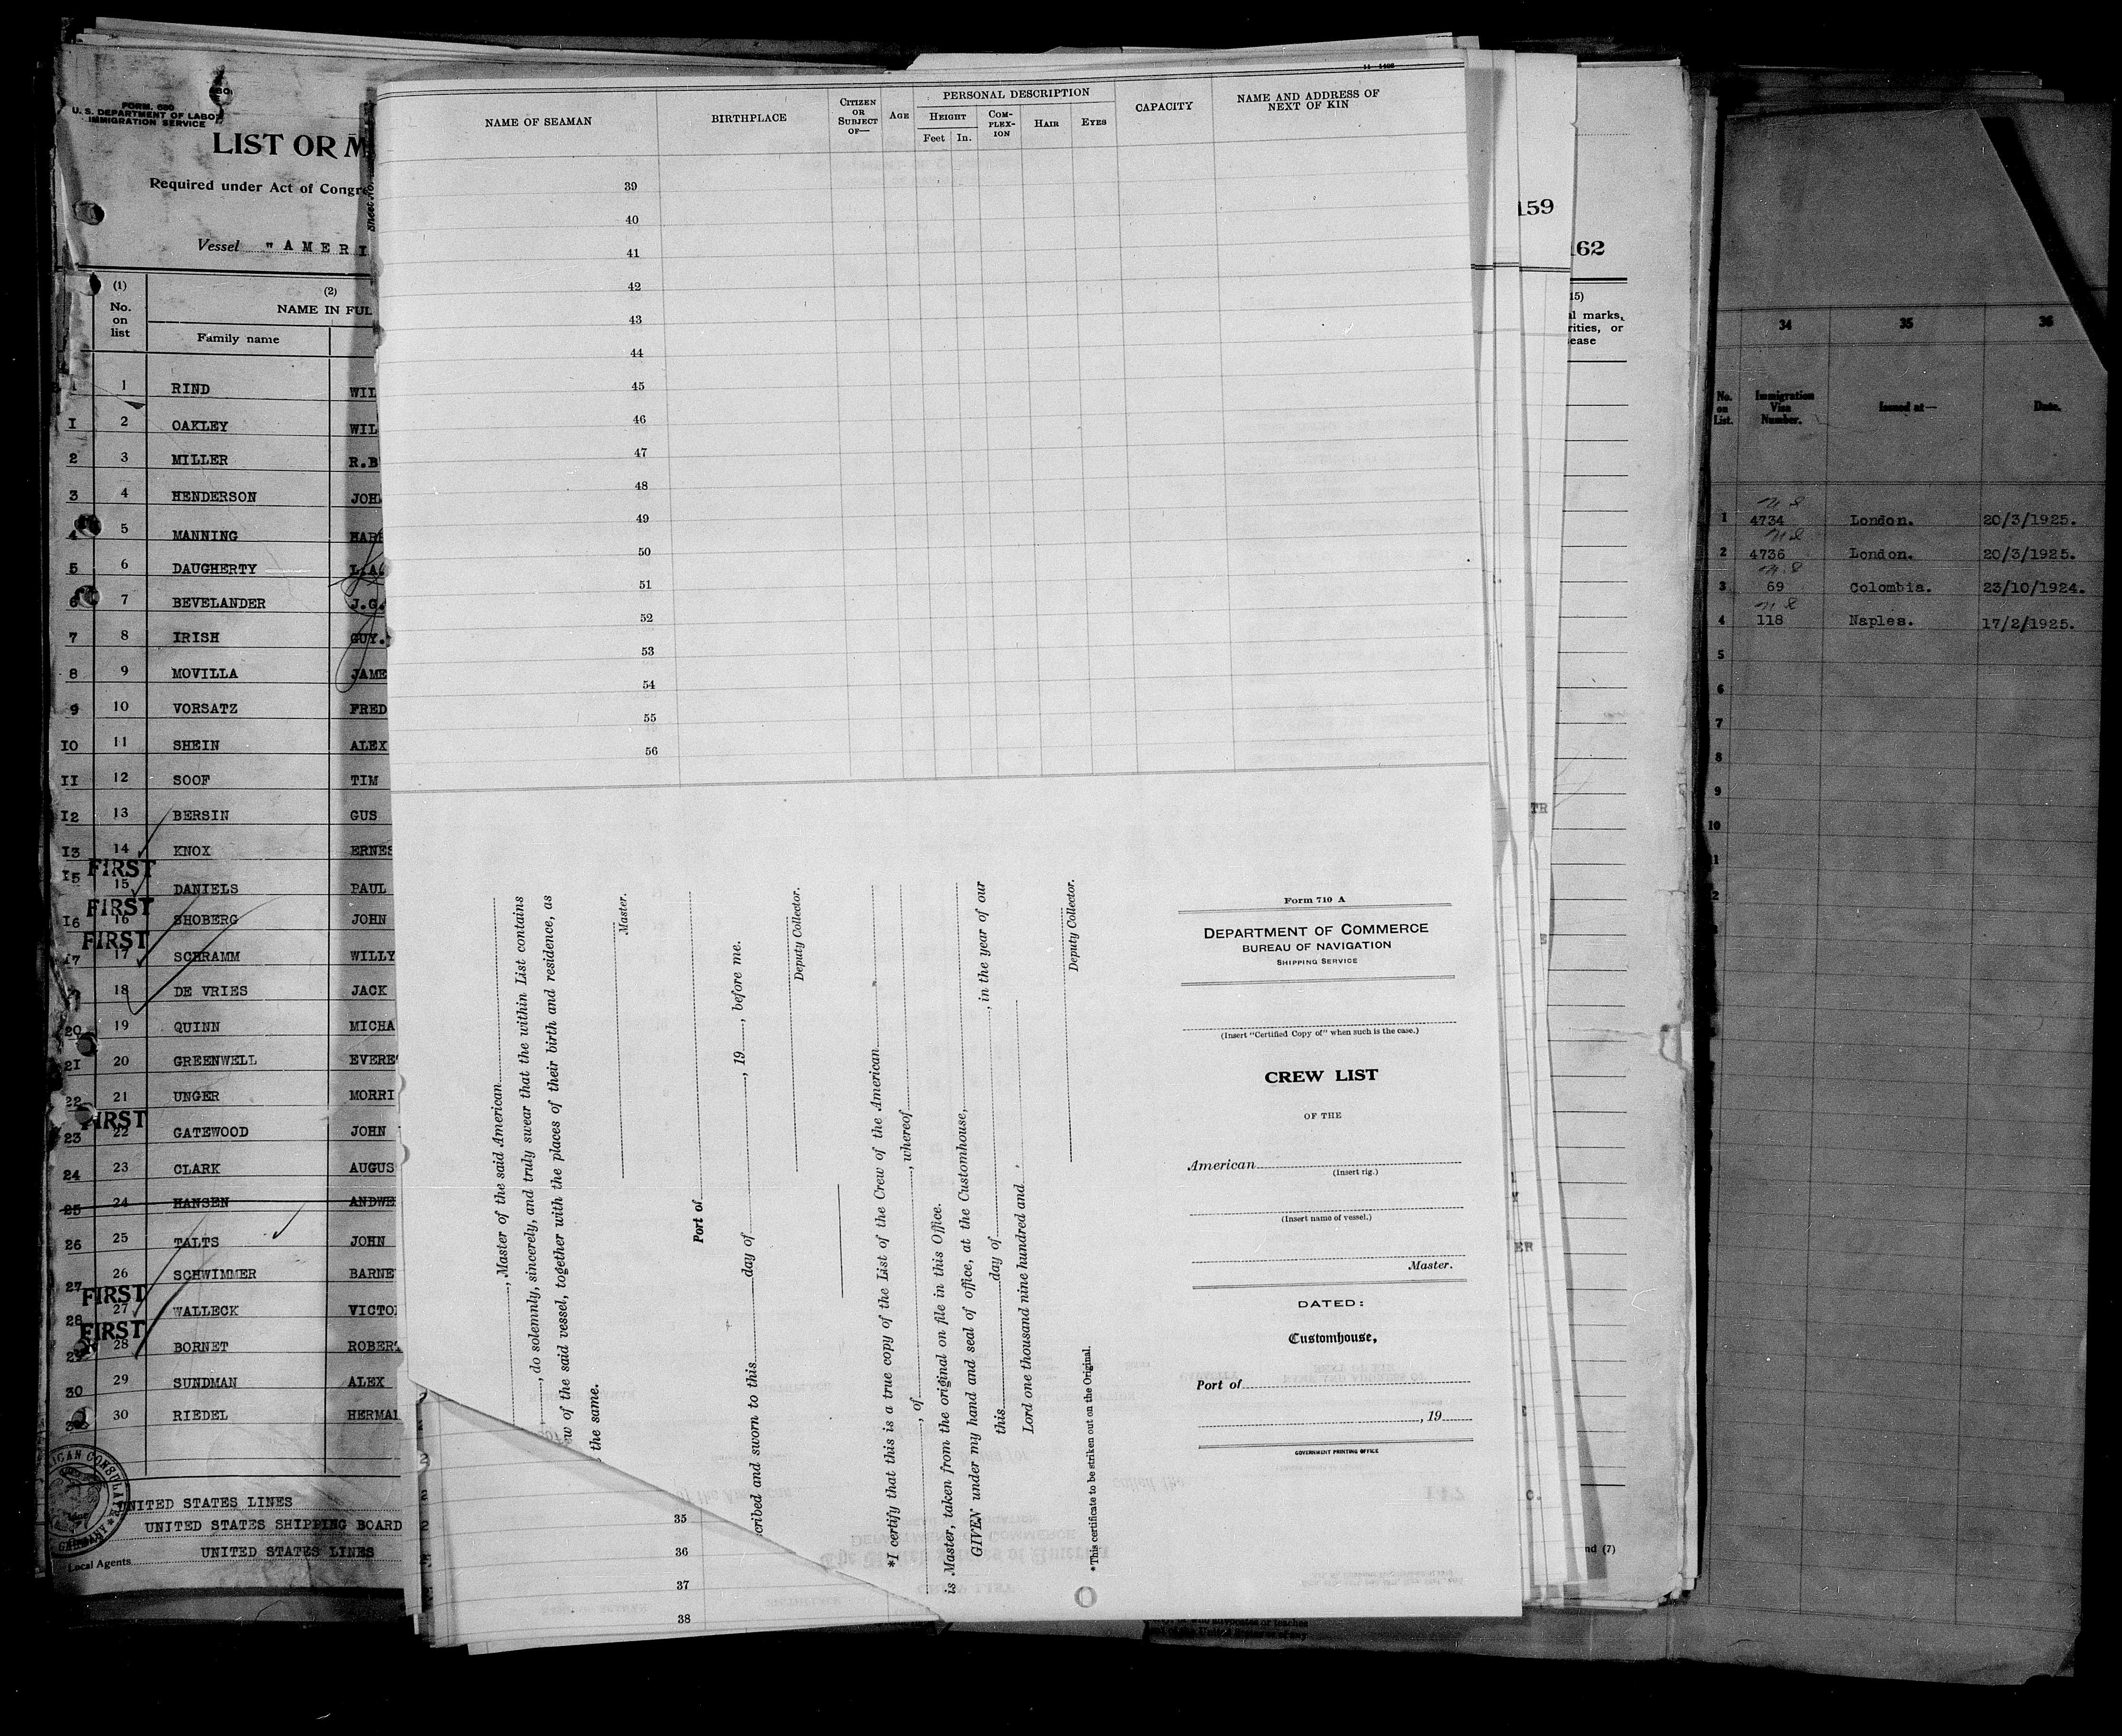 FORM. 680
U. S. DEPARTMENT OF LABOR
IMMIGRATION SERVICE
LIST OR M
Required under Act of Congre
Vessel "AMERI
(1) (2)
No. on list
NAME IN FUL
Family name
1 RIND WIL
I 2 OAKLEY WIL
2 3 MILLER R.B
3 4 HENDERSON JOH
4 5 MANNING HAR
5 6 DAUGHERTY L.A.
6 7 BEVELANDER J.G.
7 8 IRISH GUY.
8 9 MOVILLA JAME
9 10 VORSATZ FRED
IO 11 SHEIN ALEX
II 12 SOOF TIM
I2 13 BERSIN GUS
I3 14 KNOX ERNES
FIRST
I5 15 DANIELS PAUL
FIRST
I6 16 SHOBERG JOHN
FIRST
I7 17 SCHRAMM WILLY
18 DE VRIES JACK
20 19 QUINN MICHA
2I 20 GREENWELL EVERE
22 21 UNGER MORRI
FIRST
23 22 GATEWOOD JOHN
24 23 CLARK AUGUS
25 24 HANSEN ANDWE
26 25 TALTS JOHN
27 26 SCHWIMMER BARNE
FIRST
28 27 WALLECK VICTO
FIRST
29 28 BORNET ROBERT
30 29 SUNDMAN ALEX
30 RIEDEL HERMA
UNITED STATES LINES
UNITED STATES SHIPPING BOARD
UNITED STATES LINES
Local Agents
Sheet No.
11-1406
NAME OF SEAMAN
BIRTHPLACE
CITIZEN OR SUBJECT OF—
AGE
PERSONAL DESCRIPTION
HEIGHT
Feet In.
COM-PLEX-ION
HAIR
EYES
CAPACITY
NAME AND ADDRESS OF NEXT OF KIN
39
40
41
42
43
44
45
46
47
48
49
50
51
52
53
54
55
56
, Master of the said American
, do solemnly, sincerely, and truly swear that the within List contains
w of the said vessel, together with the places of their birth and residence, as
the same.
Master.
Port of
cribed and sworn to this day of , 19 , before me.
Deputy Collector.
*I certify that this is a true copy of the List of the Crew of the American
, of , whereof
is Master, taken from the original on file in this Office.
GIVEN under my hand and seal of office, at the Customhouse,
this day of , in the year of our
Lord one thousand nine hundred and
Deputy Collector.
*This certificate to be striken out on the Original.
Form 710 A
DEPARTMENT OF COMMERCE
BUREAU OF NAVIGATION
SHIPPING SERVICE
(Insert "Certified Copy of" when such is the case.)
CREW LIST
OF THE
American
(Insert rig.)
(Insert name of vessel.)
Master.
DATED:
Customhouse,
Port of
, 19
GOVERNMENT PRINTING OFFICE
35
36
37
38
159
162
15)
al marks,
rities, or
ease
TR
S
Y
ER
C.
nd (7)
34 35 36
No. on List.
Immigration Visa Number.
Issued at—
Date.
1 4734 London. 20/3/1925.
2 4736 London. 20/3/1925.
3 69 Colombia. 23/10/1924.
4 118 Naples. 17/2/1925.
5
6
7
8
9
10